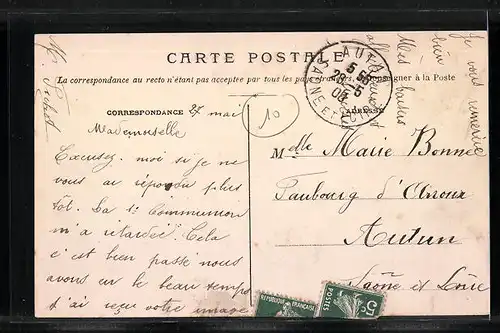 CARTE POSTALE
La correspondance au recto n'étant pas acceptée par tous les pays se renseigner à la Poste
CORRESPONDANCE
27 mai
ADRESSE
10
Mademoiselle
Excusez-moi si je ne
vous ai répondu plus
tôt. La 1e Communion
m'a retardée. Cela
c'est bien passé nous
avons eu le beau temps
d'ai reçu votre image
Melle Marie Bonnee
Faubourg d'Arroux
Autun
Saône et Loire
AUTUN
5 5
28-5
SAONE ET LOIRE
Je vous remercie
bien
Mes
REPUBLIQUE FRANÇAISE
POSTES
5c